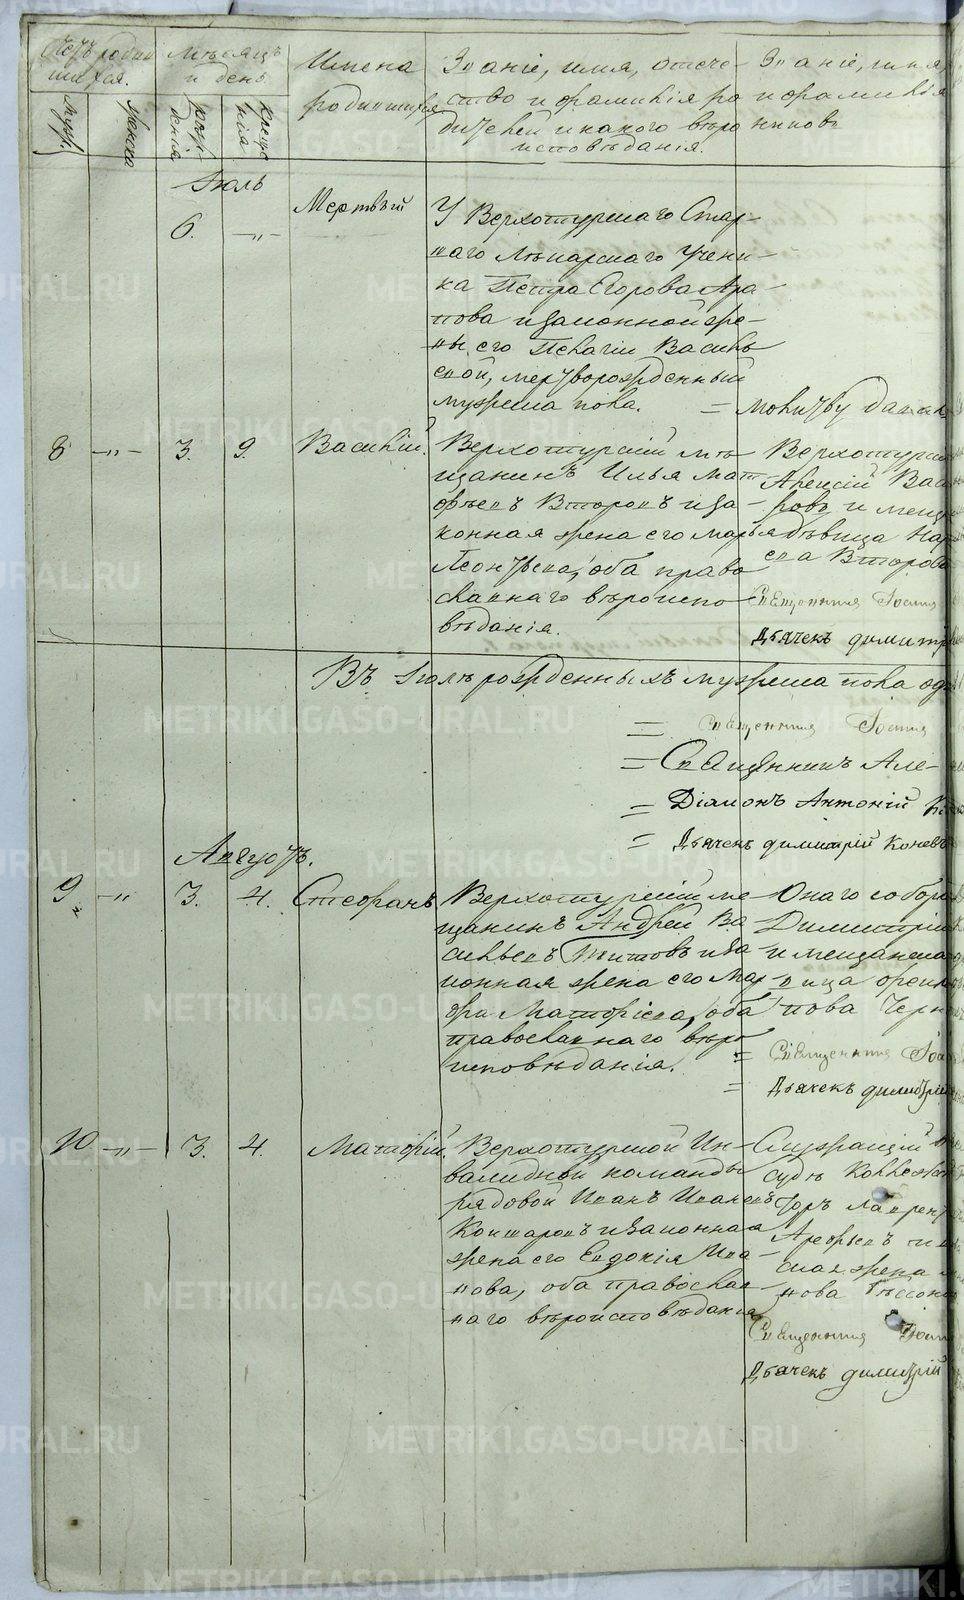 Счетъ родив
шихся.
Мѣсяцъ
и день
Имена
родившихся
Званіе, имя, отече-
ство и фамилія ро
дителей и какого вѣро
исповѣданія.
Званіе, имя,
и фамилія
муж.
женска
рож
денія
креще
нія
Іюль
6. -„-
Мертвый
У Верхотурскаго Стар-
шаго Лѣкарскаго Учени-
ка Петра Егорова
и законной же-
ны его Пелагіи Василь
евой, мертворожденный
мужеска пола.
= молитву
8 -„- 3. 9.
Василій.
Верхотурскій мѣ
щанинъ Илья Мат
фѣевъ Второвъ и за
конная жена его Марья
Леонтьева, оба право
славнаго вѣроиспо
вѣданія.
Верхотурскій
Алексій Вас
ровъ и мещ
дѣвица
Второва
Священникъ Іоаннъ
Дьячекъ Димитрій
Въ Іюлѣ рожденныхъ мужеска пола
= Священникъ Іоаннъ
= Священникъ Але-
= Діаконъ Антоній
= Дьячекъ Димитрій Коневъ
Августъ.
9 -„ 3. 4.
Стефанъ
Верхотурскій ме
щанинъ Андрей Ва
сильевъ Титовъ и за
конная жена его Мар
фа Матфіева, оба
православнаго вѣро
исповѣданія.
Онаго собора
Димитрій
и мещанска
вица
пова Черн
= Священникъ Іоа
= Дьячекъ Димитрій
10 -„- 3. 4.
Матфій.
Верхотурской Ин
валидной команды
рядовой Иванъ Ивановъ
и законная
жена его Евдокія Ива
нова, оба православ
наго вѣроисповѣданія
Служащій
судѣ Коллеж
торъ Лаврен
Арефьевъ и
ская жена
нова
Священникъ Іоан
Дьячекъ Димитрій
METRIKI.GASO-URAL.RU